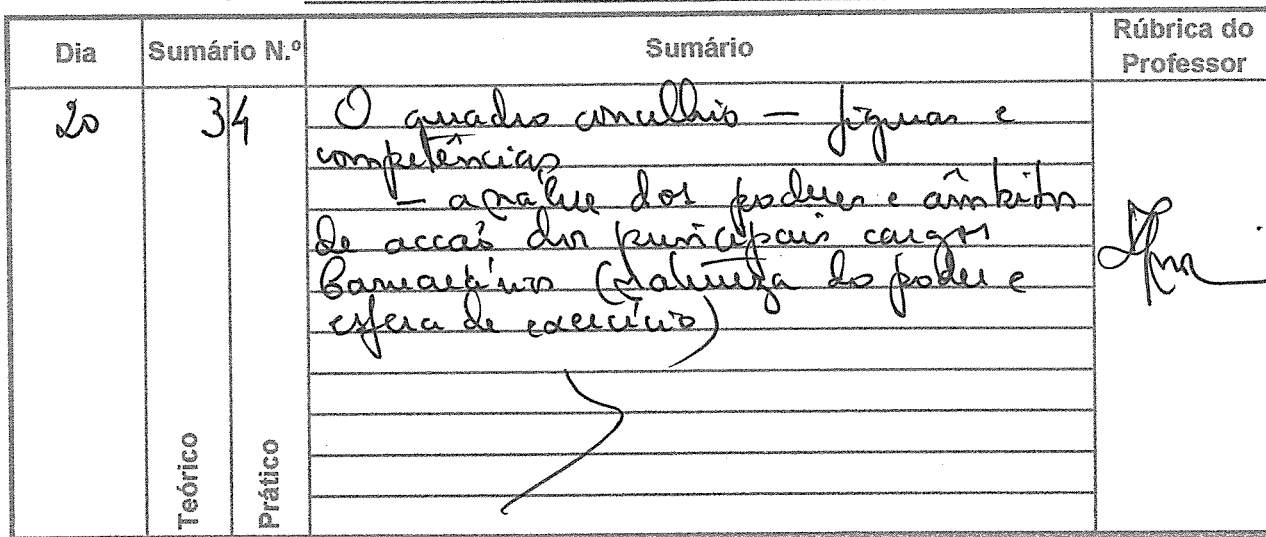 Dia Sumário N.º Sumário Rúbrica do Professor
20 34 O quadro concelhio — figuras e
competências
- análise dos poderes e âmbitos
de acção dos principais cargos
Camarários (natureza do poder e
esfera de exercício)
Teórico Prático